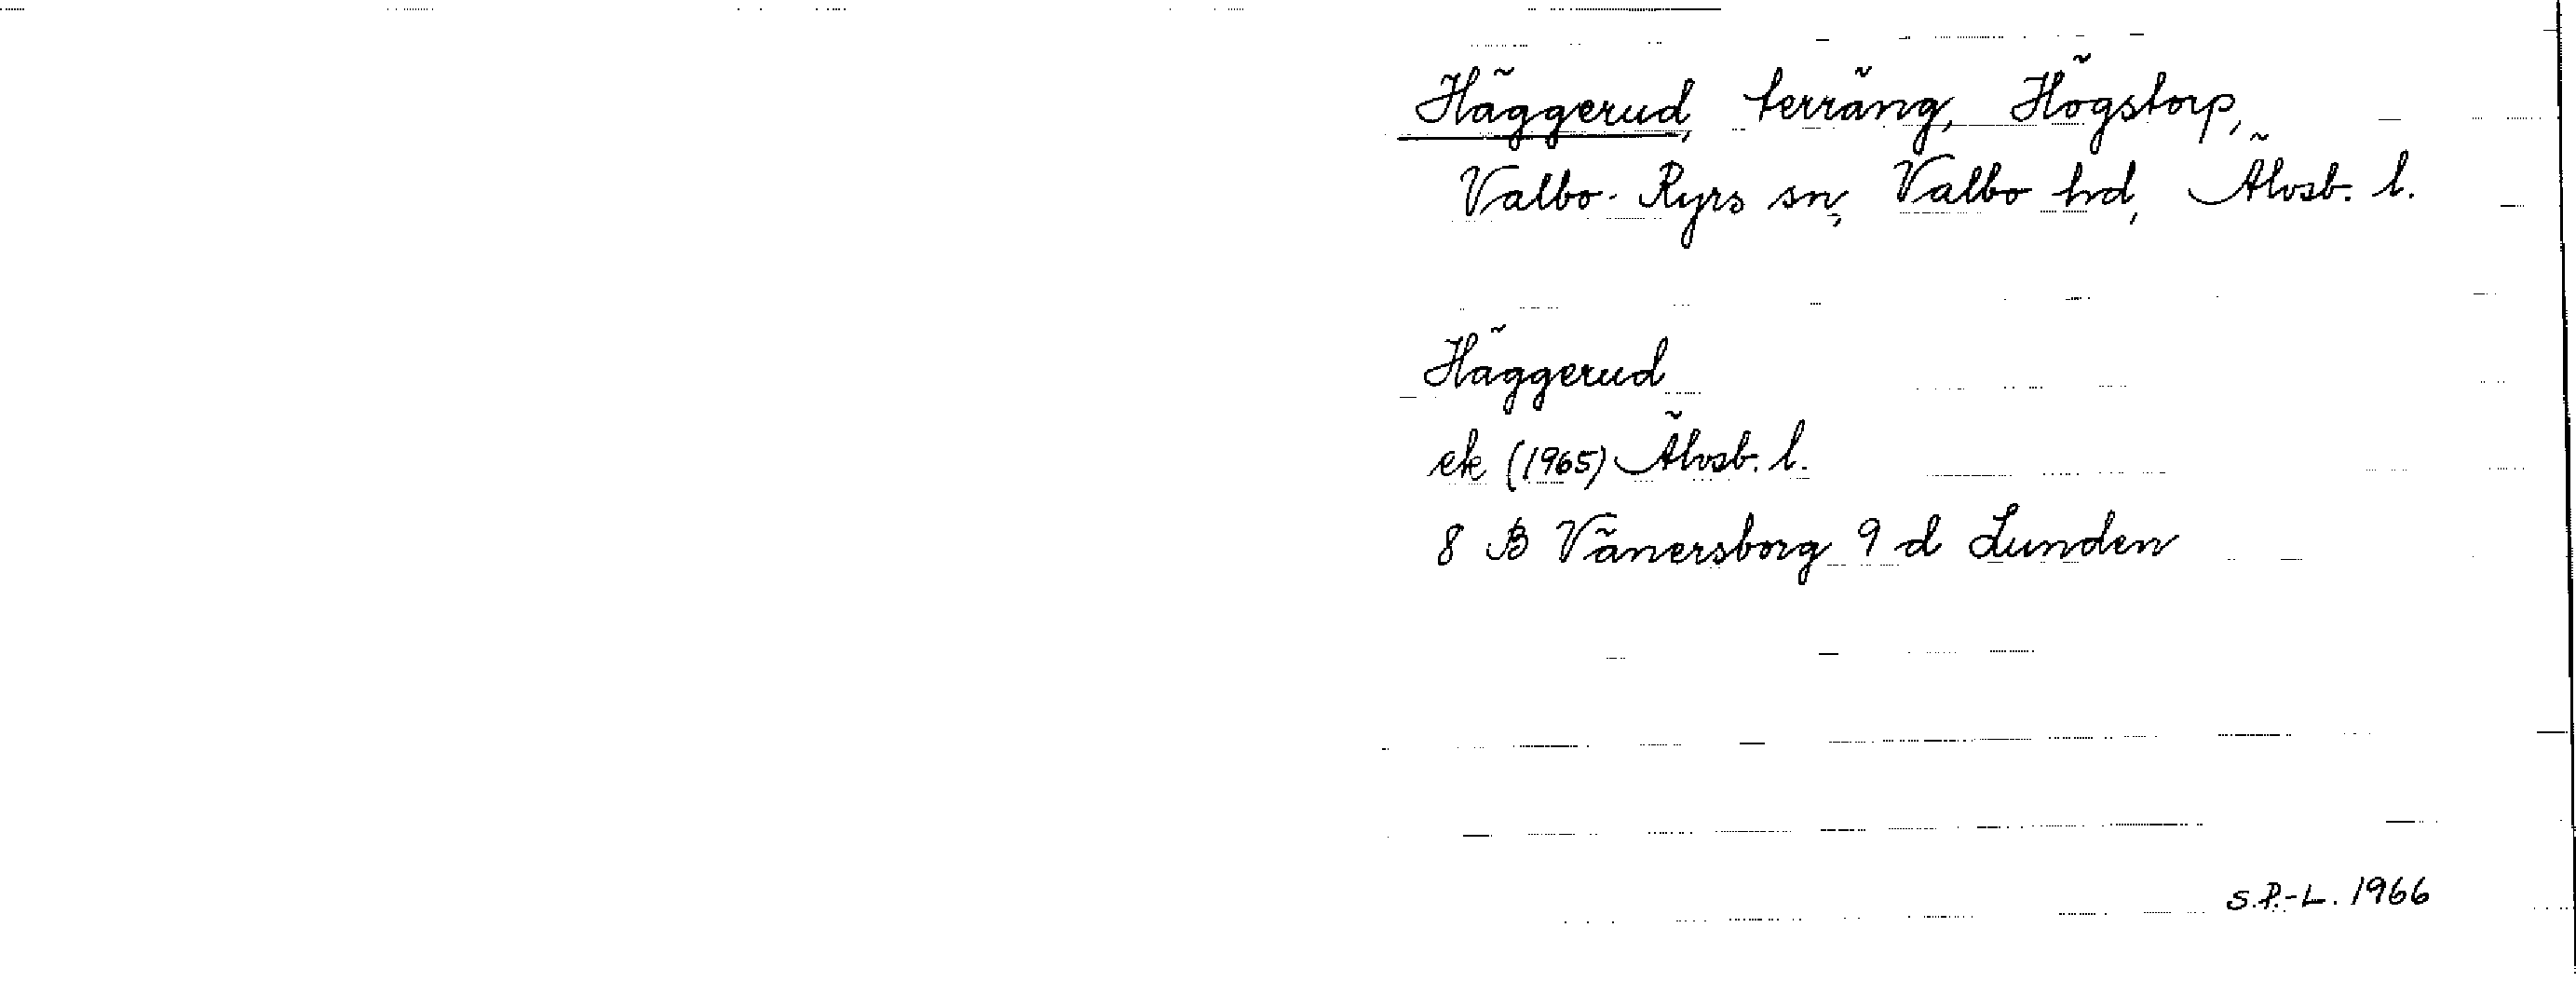 Häggerud, terräng, Högstorp,
Valbo-Ryrs sn, Valbo hd, Älvsb. l.
Häggerud
ek (1965) Älvsb. l.
8 B Vänersborg 9 d Lunden
S.P.-L. 1966